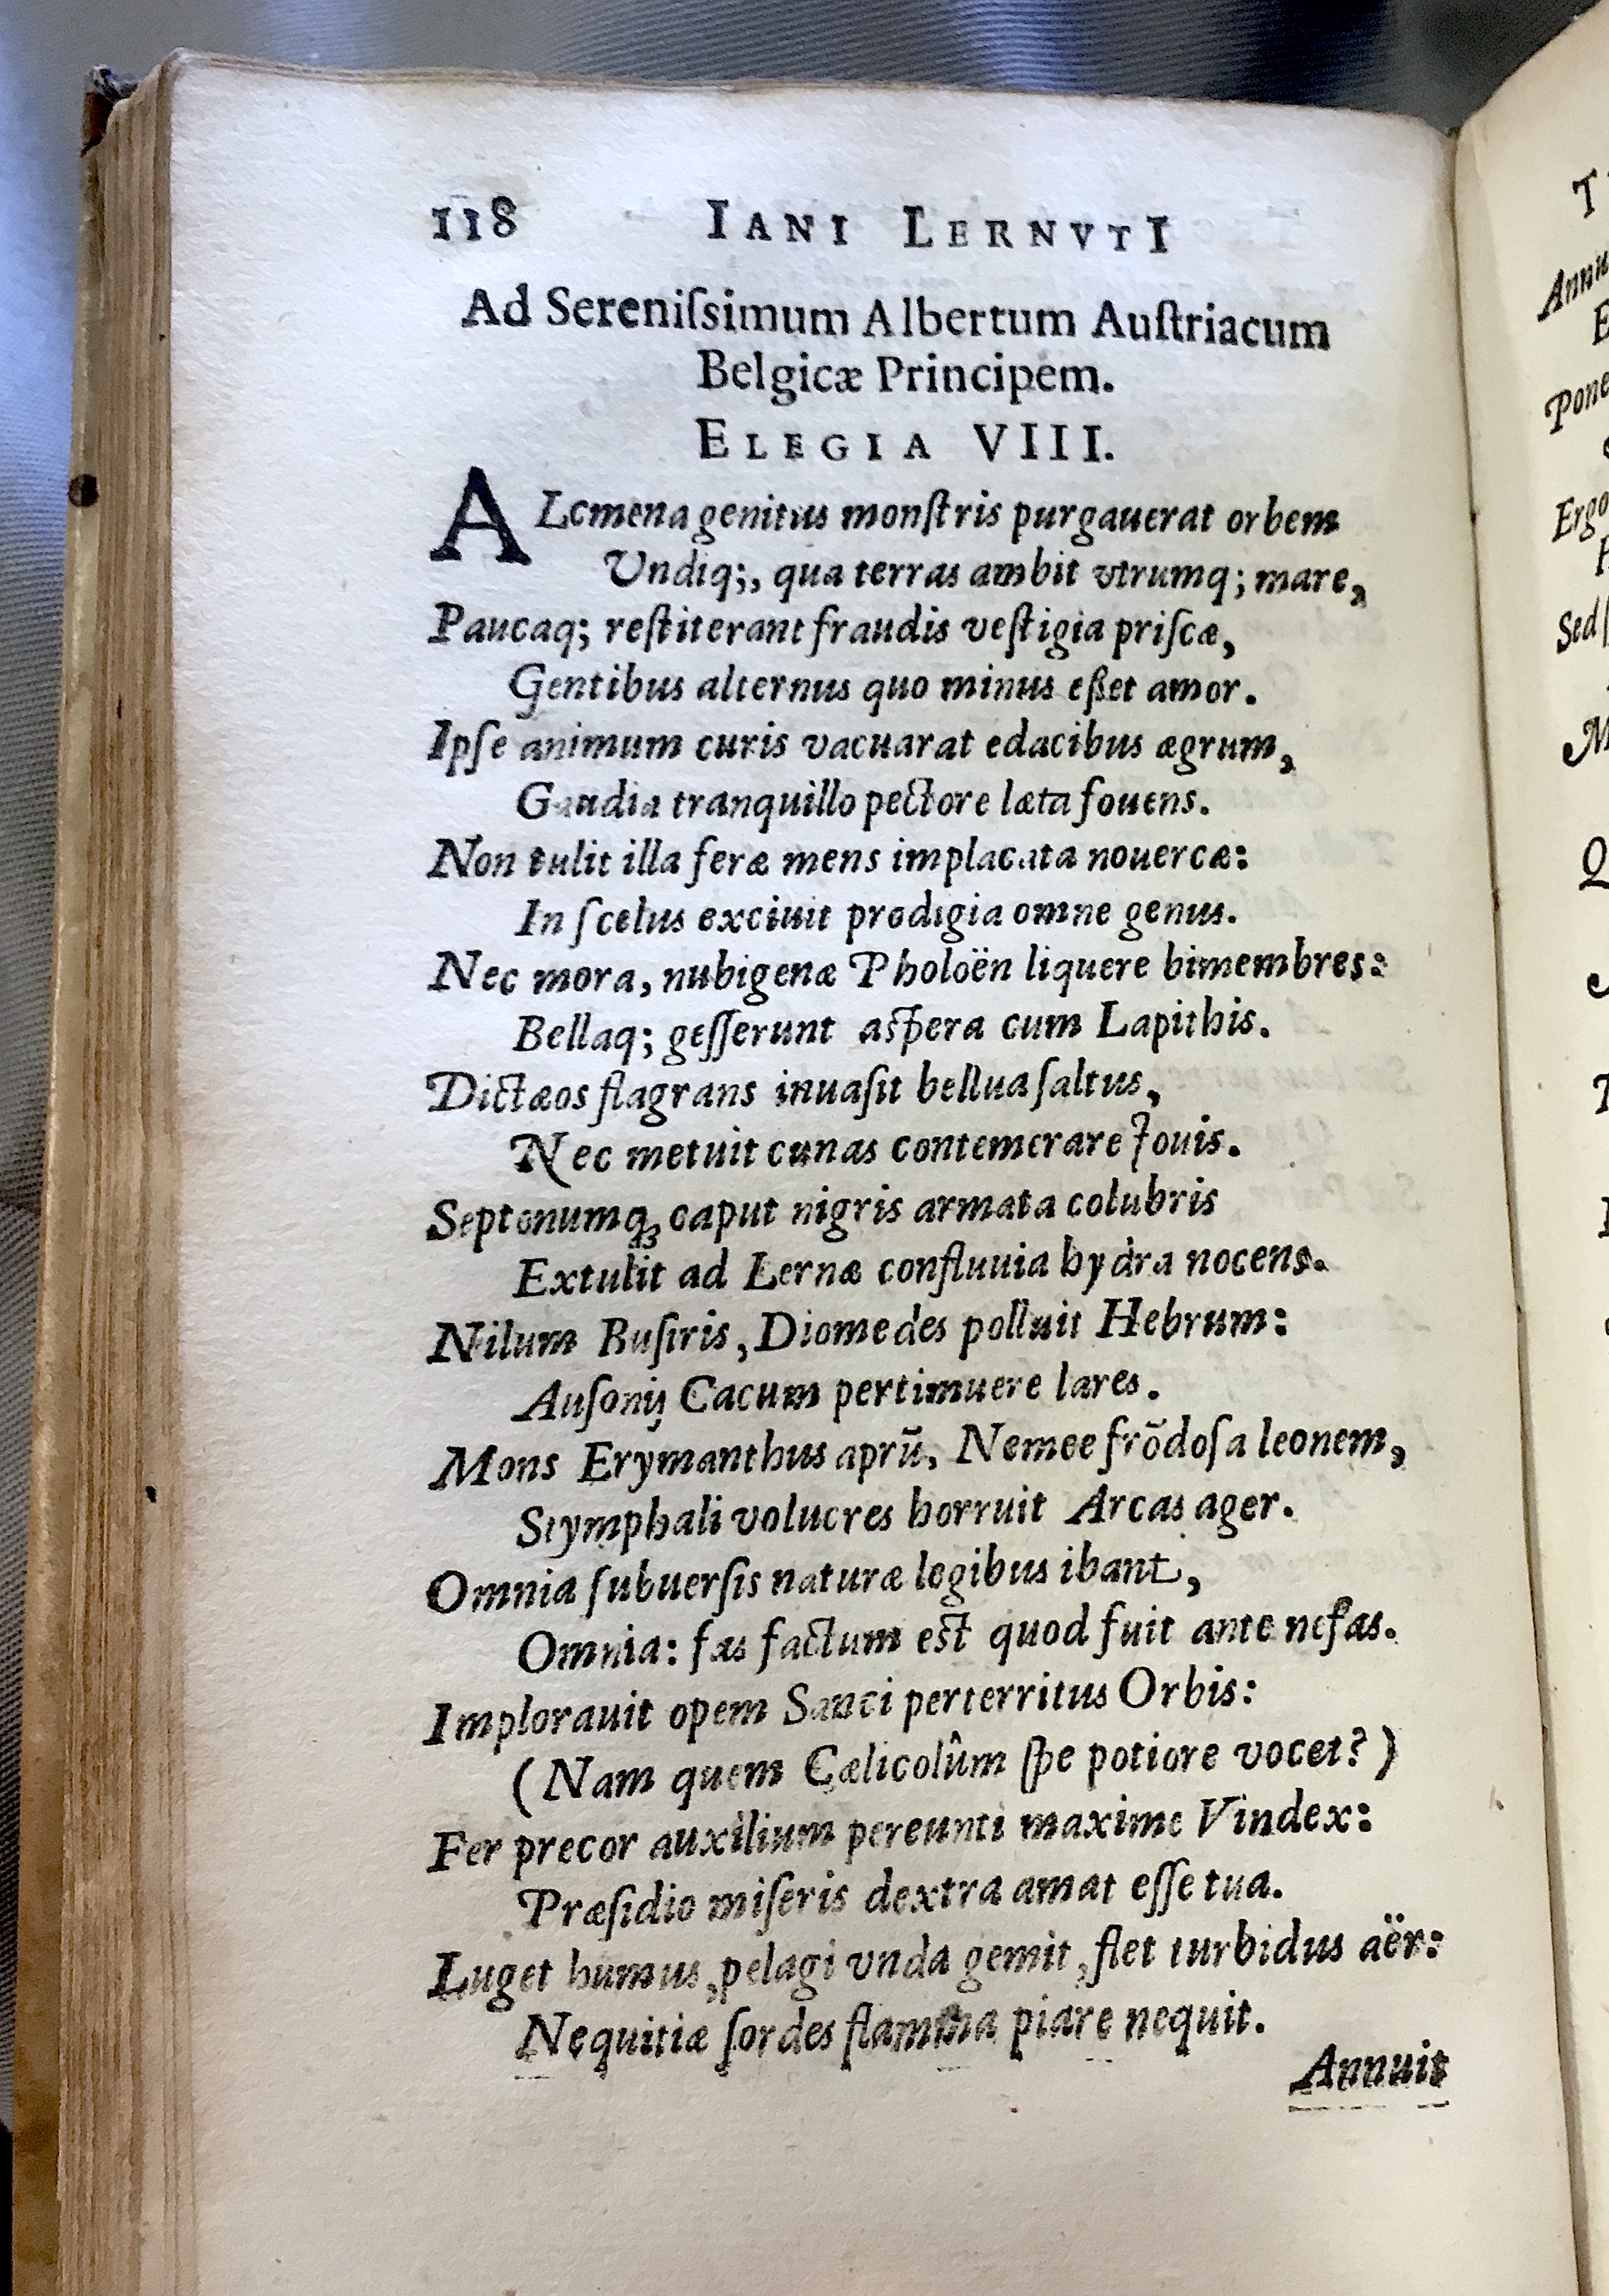 118 IANI LERNVTI
Ad Sereniſsimum Albertum Auſtriacum
Belgicæ Principem.
ELEGIA VIII.
ALcmena genitus monſtris purgauerat orbem
Undiq;, qua terras ambit vtrumq; mare,
Paucaq; reſtiterant fraudis veſtigia priſcæ,
Gentibus alternus quo minus eßet amor.
Ipſe animum curis vacuarat edacibus ægrum,
Gaudia tranquillo pectore læta fouens.
Non tulit illa feræ mens implacata nouercæ:
In ſcelus exciuit prodigia omne genus.
Nec mora, nubigenæ Pholoën liquere bimembres:
Bellaq; geſſerunt aſpera cum Lapithis.
Dictæos flagrans inuaſit bellua ſaltus,
Nec metuit cunas contemerare Jouis.
Septenumqꝫ caput nigris armata colubris
Extulit ad Lernæ confluuia hydra nocens.
Nilum Buſiris, Diomedes polluit Hebrum:
Auſonij Cacum pertimuere lares.
Mons Erymanthus aprũ, Nemee frõdoſa leonem,
Stymphali volucres horruit Arcas ager.
Omnia ſubuerſis naturæ legibus ibant,
Omnia: fas factum eſt quod fuit ante nefas.
Implorauit opem Sanci perterritus Orbis:
(Nam quem Cælicolûm ſpe potiore vocet?)
Fer precor auxilium pereunti maxime Vindex:
Præſidio miſeris dextra amat eſſe tua.
Luget humus, pelagi vnda gemit, flet turbidus aër:
Nequitiæ ſordes flamma piare nequit.
Annuit
T
Annu
E
Pone
Ergo
H
Sed
M
Q